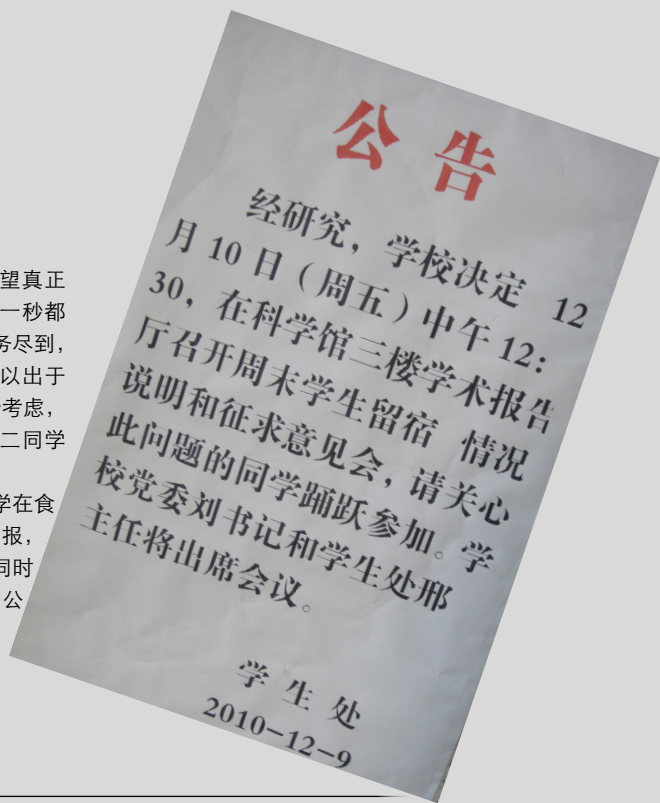 望真正
一秒都
务尽到，
以出于
考虑，
二同学
学在食
报，
同时
公
公 告
经研究，学校决定 12
月 10 日（周五）中午 12：
30，在科学馆三楼学术报告
厅召开周末学生留宿 情况
说明和征求意见会，请关心
此问题的同学踊跃参加。学
校党委刘书记和学生处邢
主任将出席会议。
学 生 处
2010-12-9